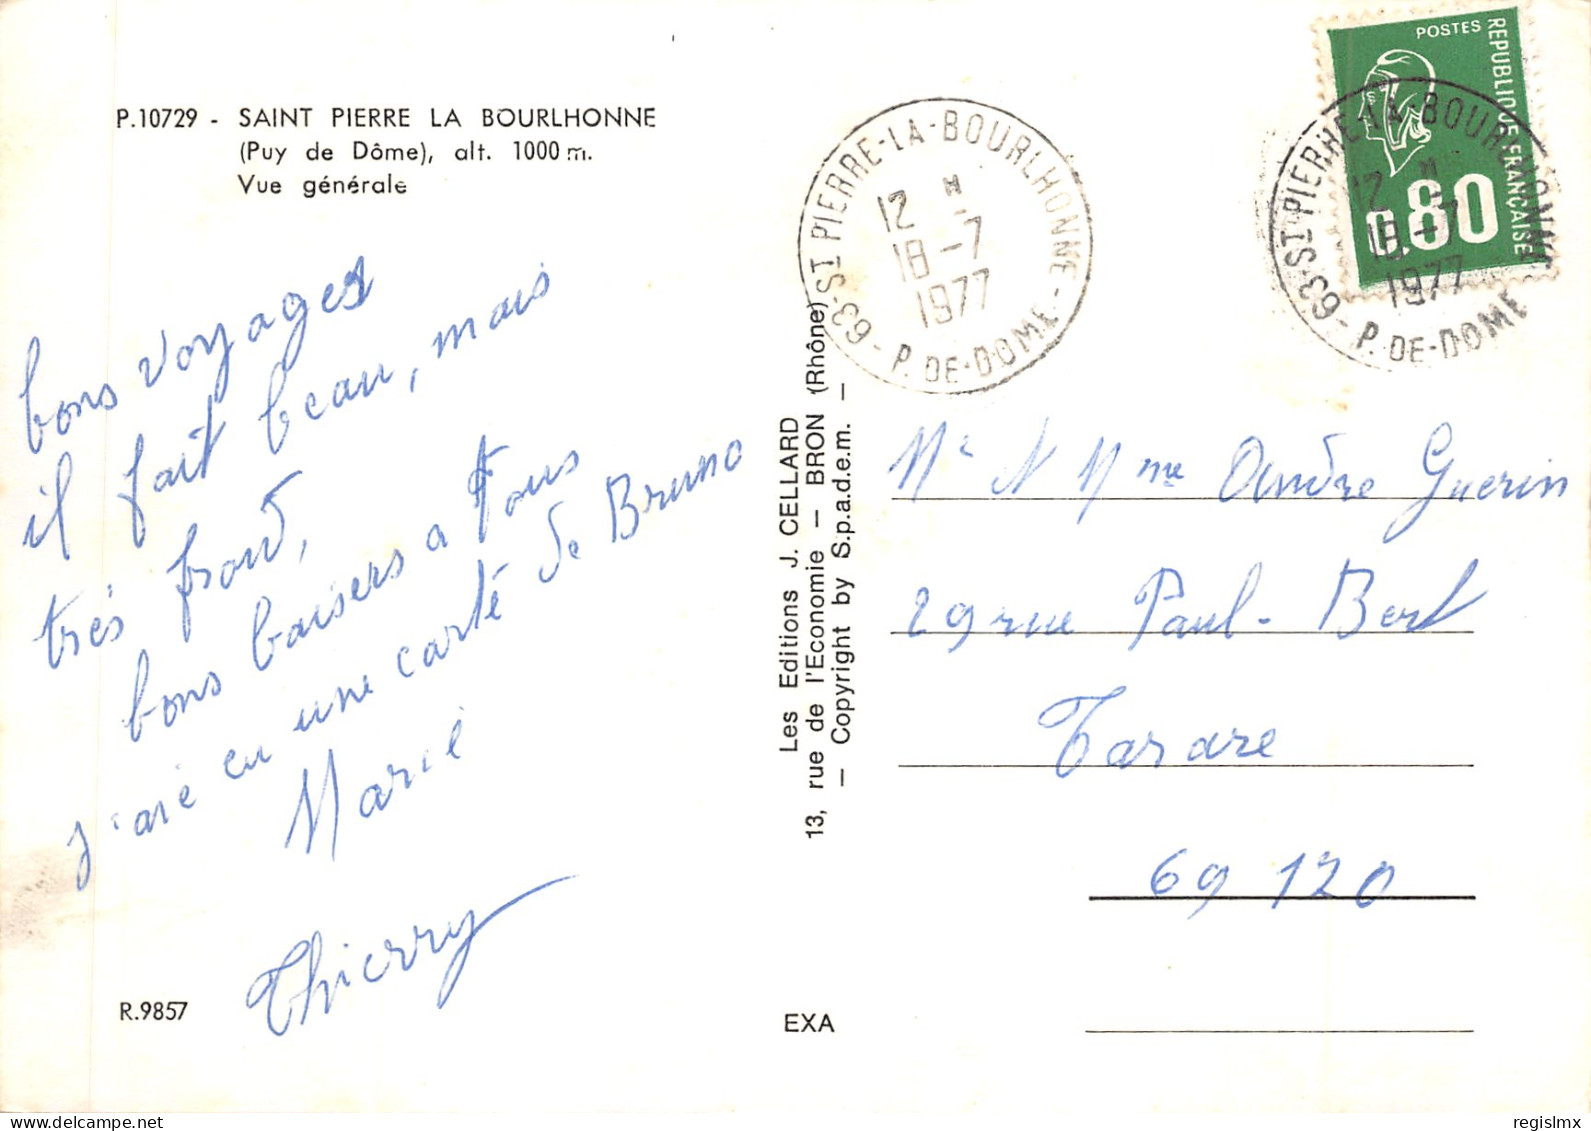 P.10729 - SAINT PIERRE LA BOURLHONNE
(Puy de Dôme), alt. 1000 m.
Vue générale
bons voyages
il fait beau, mais
très froid,
bons baisers a tous
j'aie eu une carté de Bruno
Marie
Thierry
R.9857
Les Editions J. CELLARD
13, rue de l'Economie - BRON (Rhône)
- Copyright by S.p.a.d.e.m. -
EXA
63-ST PIERRE-LA-BOURLHONNE - P. DE-DOME
12 H
18-7
1977
POSTES
REPUBLIQUE FRANÇAISE
0.80
63-ST PIERRE-LA-BOURLHONNE - P. DE-DOME
12 H
18-7
1977
Mme André Guerin
29 rue Paul-Bert
Tarare
69 120
regislmx